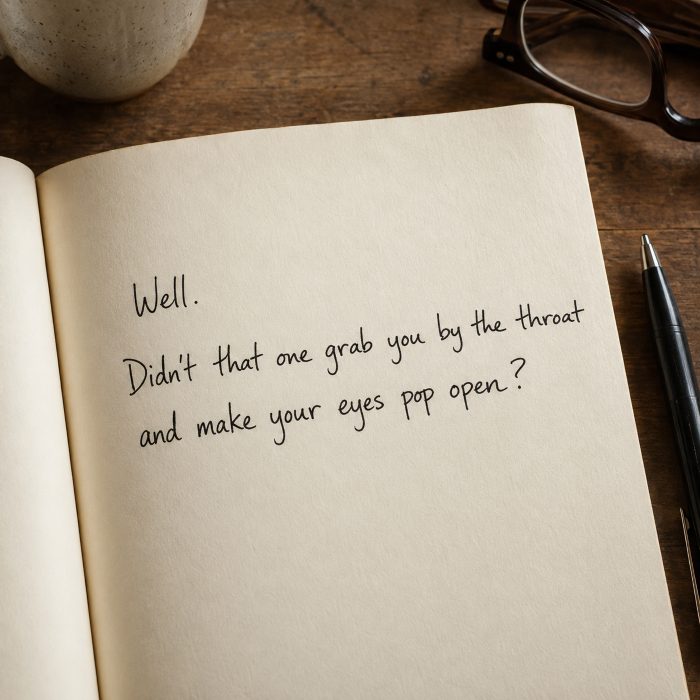 Well.
Didn't that one grab you by the throat
and make your eyes pop open?